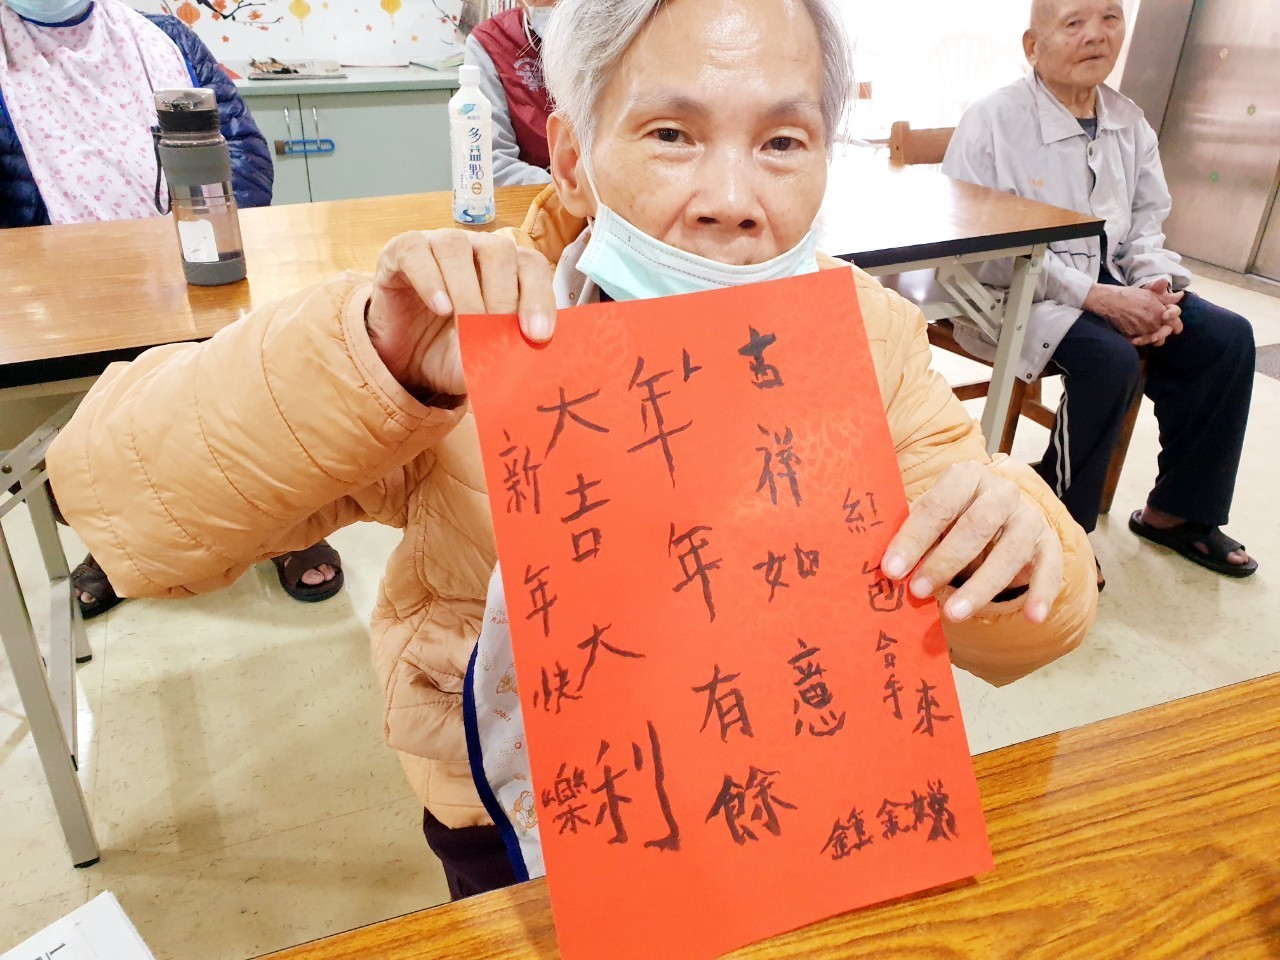 紅包拿來
吉祥如意
年年有餘
大吉大利
新年快樂
鍾金
多益點
rabbit